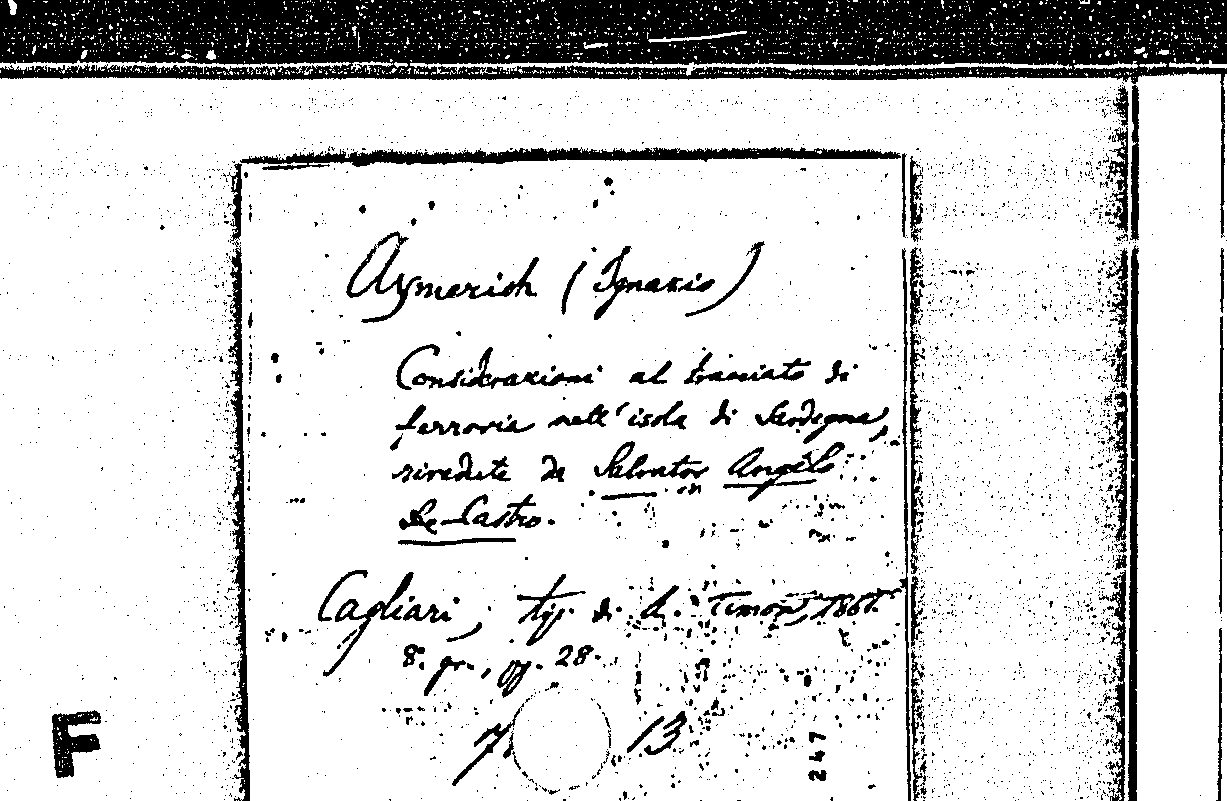 Aymerich (Ignazio)
Considerazioni al tracciato di
ferrovia nell'isola di Sardegna,
rivedute da Salvator Angelo
De-Castro.
Cagliari, tip. di A. Timon, 1861.
8.° gr., pp. 28.
7. 13
247
F